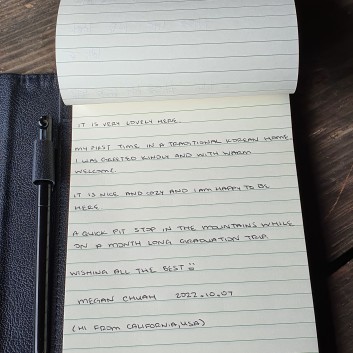 IT IS VERY LOVELY HERE.
MY FIRST TIME IN A TRADITIONAL KOREAN HOME.
I WAS GREETED KINDLY AND WITH WARM
WELCOME.
IT IS NICE AND COZY AND I AM HAPPY TO BE
HERE
A QUICK PIT STOP IN THE MOUNTAINS WHILE
ON A MONTH LONG GRADUATION TRIP.
WISHING ALL THE BEST
MEGAN CHUAH 2022.10.07
(HI FROM CALIFORNIA, USA)